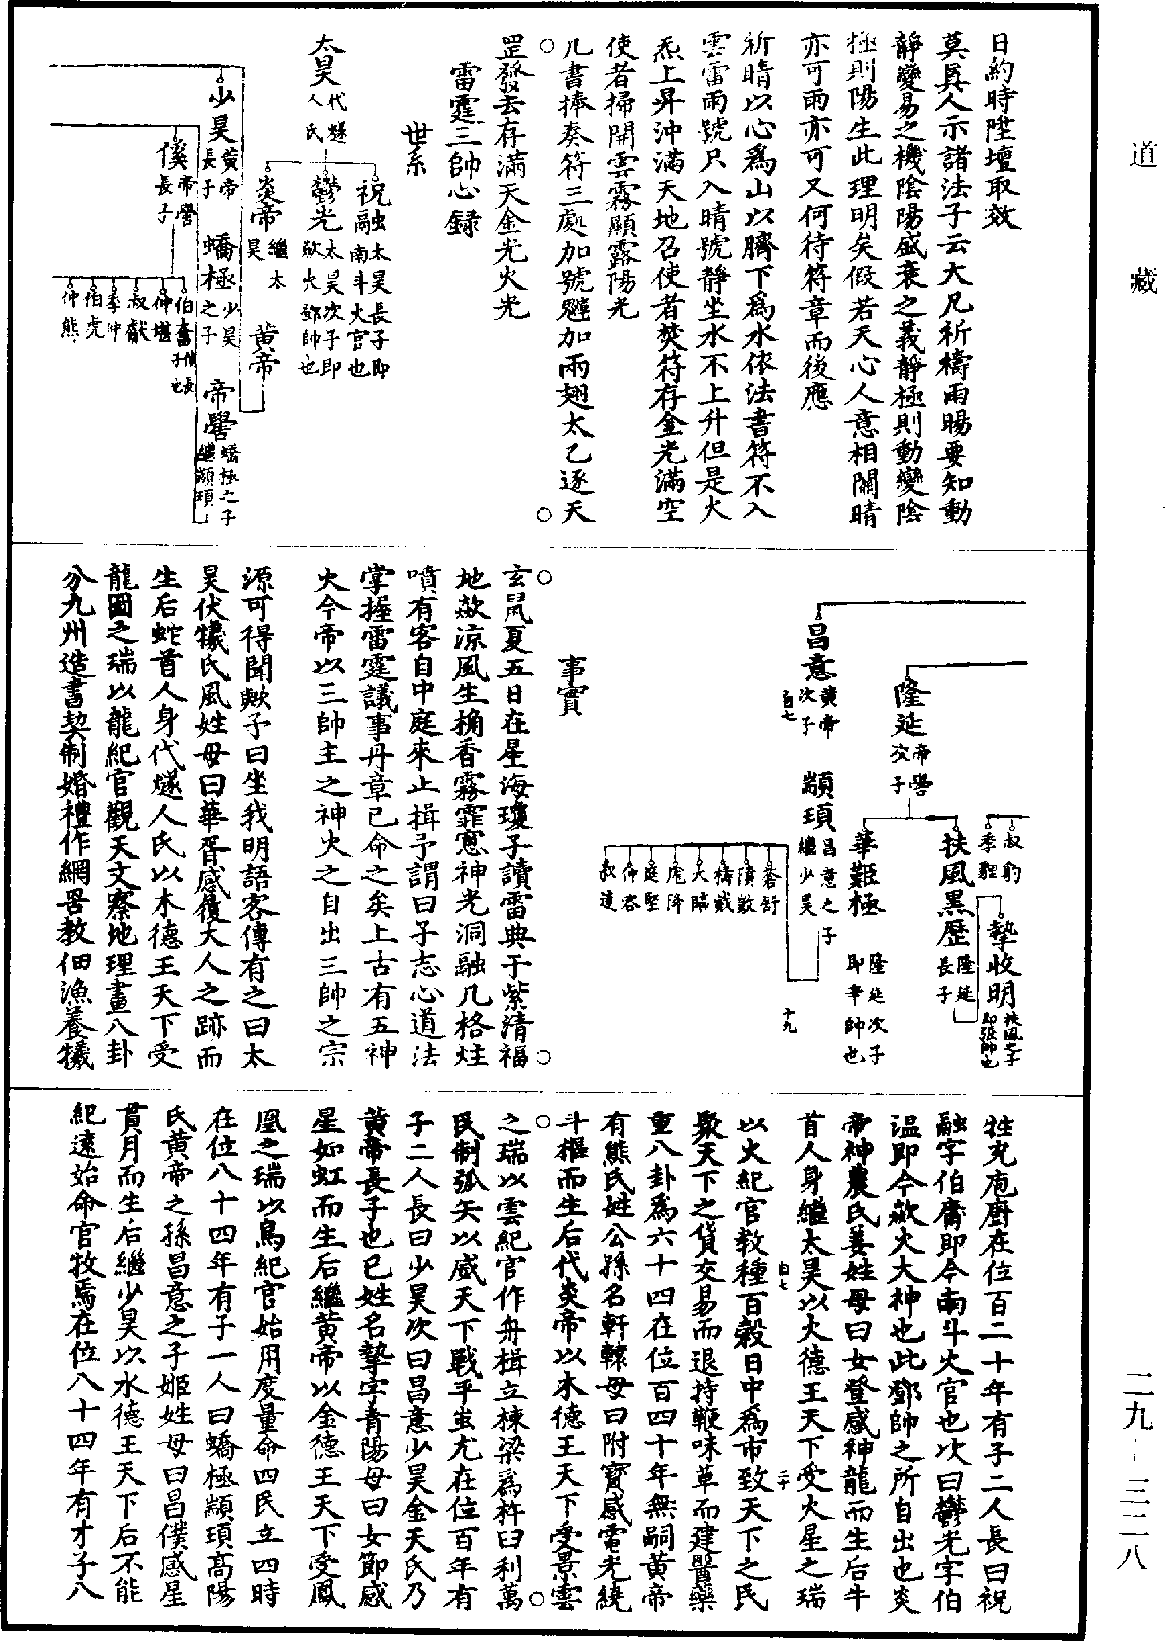 道藏
二九—三二八
日約時陞壇取效
莫真人示諸法子云大凡祈禱雨暘要知動
靜變易之機陰陽盛衰之義靜極則動變陰
極則陽生此理明矣假若天心人意相關晴
亦可雨亦可又何待符章而後應
祈晴以心爲山以臍下爲水依法書符不入
雲雷雨號只入晴號靜坐水不上升但是火
炁上昇沖滿天地召使者焚符存金光滿空
使者掃開雲霧顯露陽光
几書捧奏符三處加號魑加兩翅太乙逐天
罡發去存滿天金光火光
雷霆三帥心録
世系
太昊代燧人氏
祝融太昊長子即南斗火官也
鬱光太昊次子即歘火鄧帥也
炎帝繼太昊
黄帝
少昊黄帝長子
蟜極少昊之子
帝嚳蟜極之子繼顓頊
僕帝嚳長子
伯奮僕長子也
仲堪
叔獻
季仲
伯虎
仲熊
叔豹
季貍
隆延帝嚳次子
扶風黑歷隆延長子
摯收明扶風之子即張帥也
華艱極隆延次子即辛帥也
昌意黄帝次子
顓頊昌意之子繼少昊
蒼舒
隤敳
檮戭
大臨
尨降
庭堅
仲容
叔達
自七
十九
事實
玄鼠夏五日在星海瓊子讀雷典于紫清福
地歘涼風生桷香霧霏窻神光洞融几格炷
噴有客自中庭來止揖予謂曰子志心道法
掌握雷霆議事丹章已命之矣上古有五神
火今帝以三帥主之神火之自出三帥之宗
源可得聞歟子曰坐我明語客傳有之曰太
昊伏犧氏風姓母曰華胥感履大人之跡而
生后蛇首人身代燧人氏以木德王天下受
龍圖之瑞以龍紀官觀天文察地理畫八卦
分九州造書契制婚禮作網罟教佃漁養犧
牲充庖廚在位百二十年有子二人長曰祝
融字伯庸即今南斗火官也次曰鬱光字伯
温即今歘火大神也此鄧帥之所自出也炎
帝神農氏姜姓母曰女登感神龍而生后牛
首人身繼太昊以火德王天下受火星之瑞
以火紀官教種百穀日中爲市致天下之民
聚天下之貨交易而退持鞭味草而建醫藥
重八卦爲六十四在位百四十年無嗣黄帝
有熊氏姓公孫名軒轅母曰附寶感電光繞
斗樞而生后代炎帝以木德王天下受景雲
之瑞以雲紀官作舟楫立棟梁爲杵臼利萬
民制弧矢以威天下戰乎蚩尤在位百年有
子二人長曰少昊次曰昌意少昊金天氏乃
黄帝長子也已姓名摯字青陽母曰女節感
星如虹而生后繼黄帝以金德王天下受鳳
凰之瑞以鳥紀官始用度量命四民立四時
在位八十四年有子一人曰蟜極顓頊高陽
氏黄帝之孫昌意之子姬姓母曰昌僕感星
貫月而生后繼少昊以水德王天下后不能
紀遠始命官牧焉在位八十四年有才子八
自七
二十